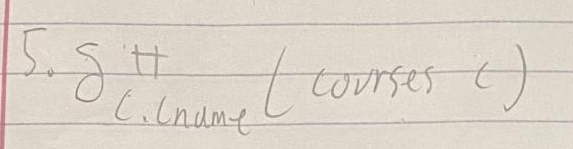 5. g # C.Cname (courses c)